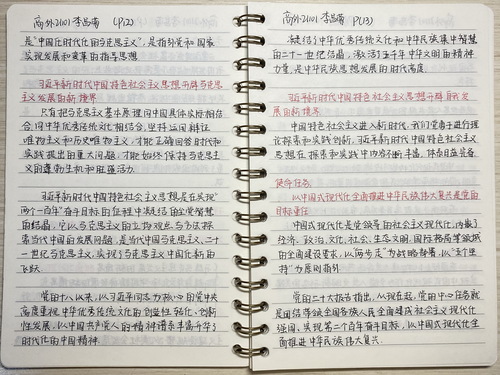 高外2101 李昌蓉 (P12)
是“中国化时代化的马克思主义”,是指引党和国家
发展和变革的指导思想
习近平新时代中国特色社会主义思想开辟马克思
主义发展的新境界
只有把马克思主义基本原理同中国具体实际相结
合,同中华优秀传统文化相结合,坚持运用辩证
唯物主义和历史唯物主义,才能正确回答时代和
实践提出的重大问题,才能始终保持马克思主义
的蓬勃生机和旺盛活力.
习近平新时代中国特色社会主义思想是在实现“
两个一百年”奋斗目标的征程中凝结的全党智慧
的结晶,它以马克思主义的立场观点与方法探
索当代中国的发展问题,是当代中国马克思主义,二十
一世纪马克思主义,实现了马克思主义中国化新的
飞跃.
党的十八以来,以习近平同志为核心的党中央
高度重视中华优秀传统文化的创造性转化、创新
性发展,以中国共产党人的精神谱系丰富升华了
时代化的中国精神.
高外2101 李昌蓉 P(13)
凝结了中华优秀传统文化和中华民族集中智慧
的二十一世纪结晶,激活了五千年中华文明的精神
力量,是中华民族思想发展的时代高度.
习近平新时代中国特色社会主义思想开辟自我发
展的新境界
中国特色社会主义进入新时代,我们党勇于进行理
论探索和实践创新,习近平新时代中国特色社会主义
思想在探索和实践中内容不断丰富,体系日益完备.
使命任务:
以中国式现代化全面推进中华民族伟大复兴是党的
目标责任
中国式现代化是党领导的社会主义现代化,内嵌了
经济、政治、文化、社会、生态文明、国际格局等领域
的全面建设要求,以“两步走”为战略部署,以“五个坚
持”为原则指引
党的二十大报告指出,从现在起,党的中心任务就
是团结带领全国各族人民全面建成社会主义现代化
强国、实现第二个百年奋斗目标,以中国式现代化全
面推进中华民族伟大复兴.